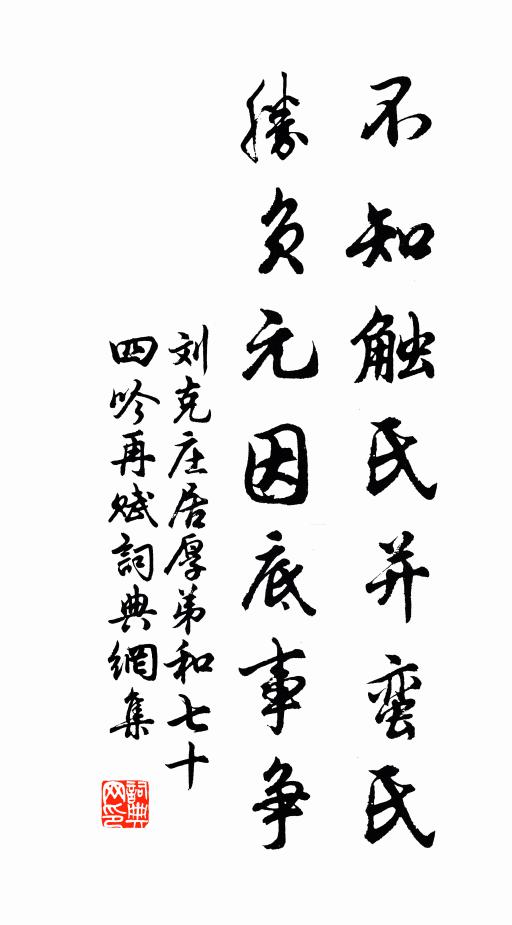 不知触氏并蛮氏
勝负元因底事争
刘克庄居厚弟和七十
四吟再赋詞典網集
詞典网印